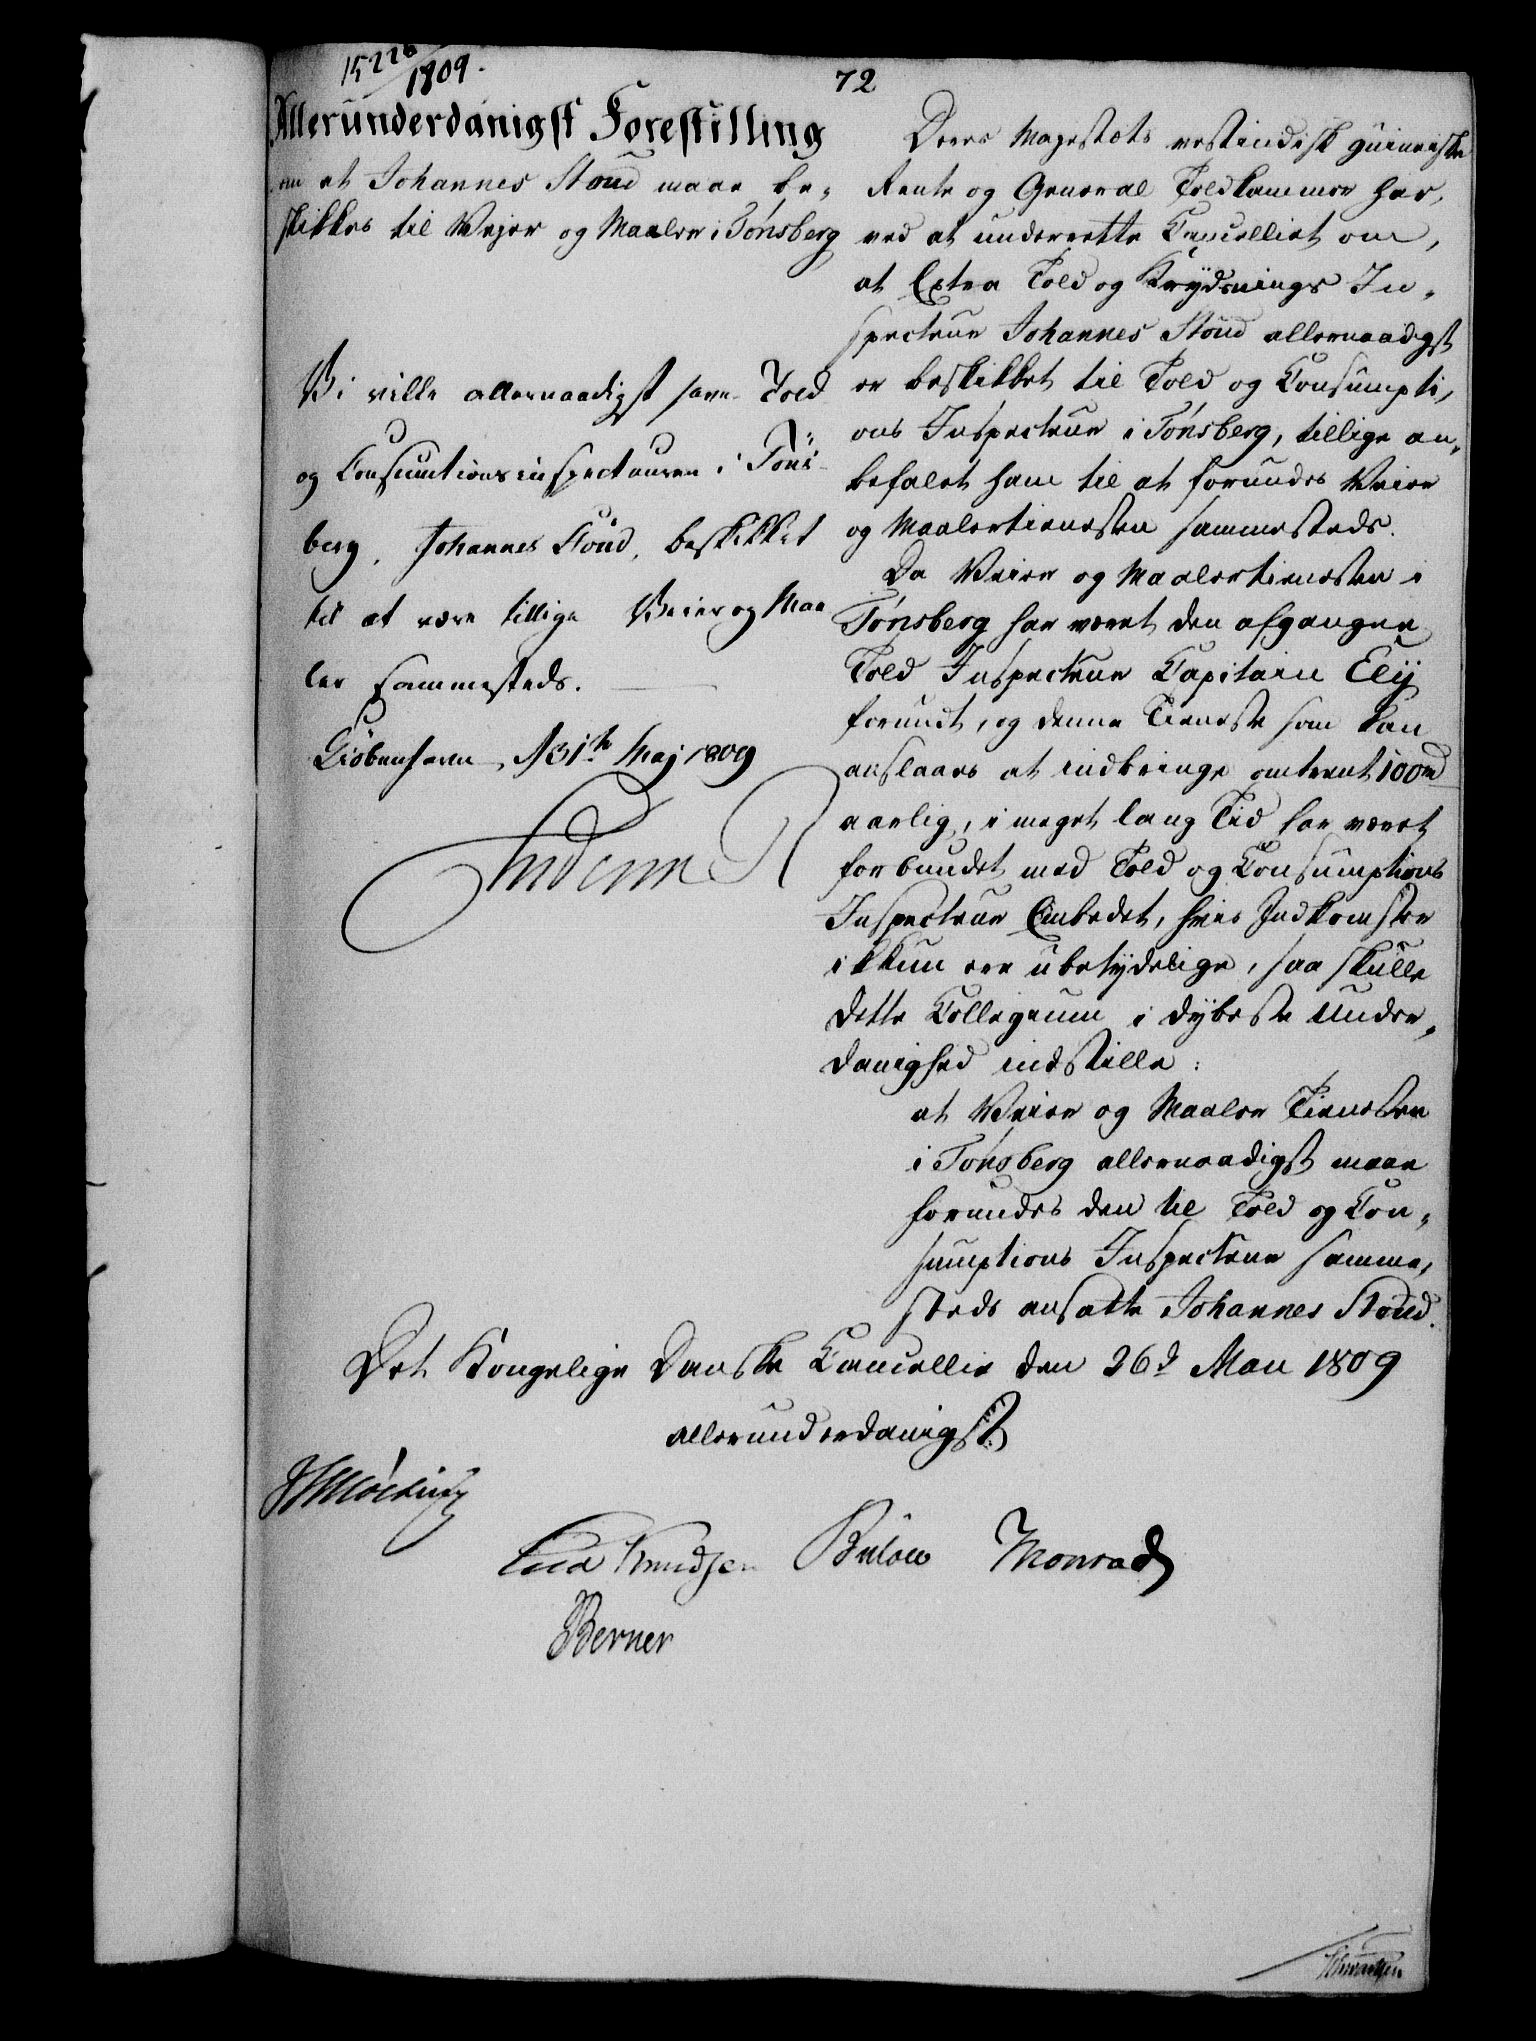 15226/1809.
72
Allerunderdanigst Forestilling
om at Johannes Stoud maae be-
skikkes til Vejer og Maaler i Tönsberg
Vi ville allernaadigst have Told
og Consumtionsinspecteuren i Töns-
berg, Johannes Stoud, beskikket
til at være tillige Veier og Maa
ler sammesteds.
Kiöbenhavn, d 31te Maj 1809
Frederik R
Deres Majestæts vestindisk guineiske
Rente og General Toldkammer har,
ved at underrette Cancelliet om,
at Extra Told og Krydsnings In-
specteur Johannes Stoud allernaadigst
er beskikket til Told og Consumpti-
ons Inspecteur i Tönsberg, tillige an-
befalet ham til at forundes Veier
og Maalertienesten sammesteds.
Da Veier og Maalertienesten i
Tönsberg har været den afgangne
Told Inspecteur Capitain Ely
forundt, og denne Tieneste som kan
anslaaes at indbringe omtrent 100 rd
aarlig, i meget lang Tid har været
forbundet med Told og Consumptions
Inspecteur Embedet, hvis Indkomster
ikkun ere ubetydelige, saa skulle
dette Collegium i dybeste Under-
danighed indstille:
at Veier og Maaler Tienesten
i Tönsberg allernaadigst maae
forundes den til Told og Con-
sumptions Inspecteur samme-
steds ansatte Johannes Stoud.
Det Kongelige Danske Cancellie den 26d Maii 1809
allerunderdanigst
Mösting
Knudsen Bülow Monrad
Berner